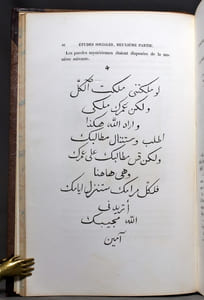 ÉTUDES SOCIALES, DEUXIÈME PARTIE.
Les paroles mystérieuses étaient disposées de la ma-
nière suivante.
لو ملكتنى ملكت الكلّ
ولكن عمرك ملكى
واراد الله هكذا
اطلب وستنال مطالبك
ولكن قس مطالبك على عمرك
وهى هاهنا
فبكل مرامك ستنزل ايامك
أتريد فى
الله مجيبك
آمين